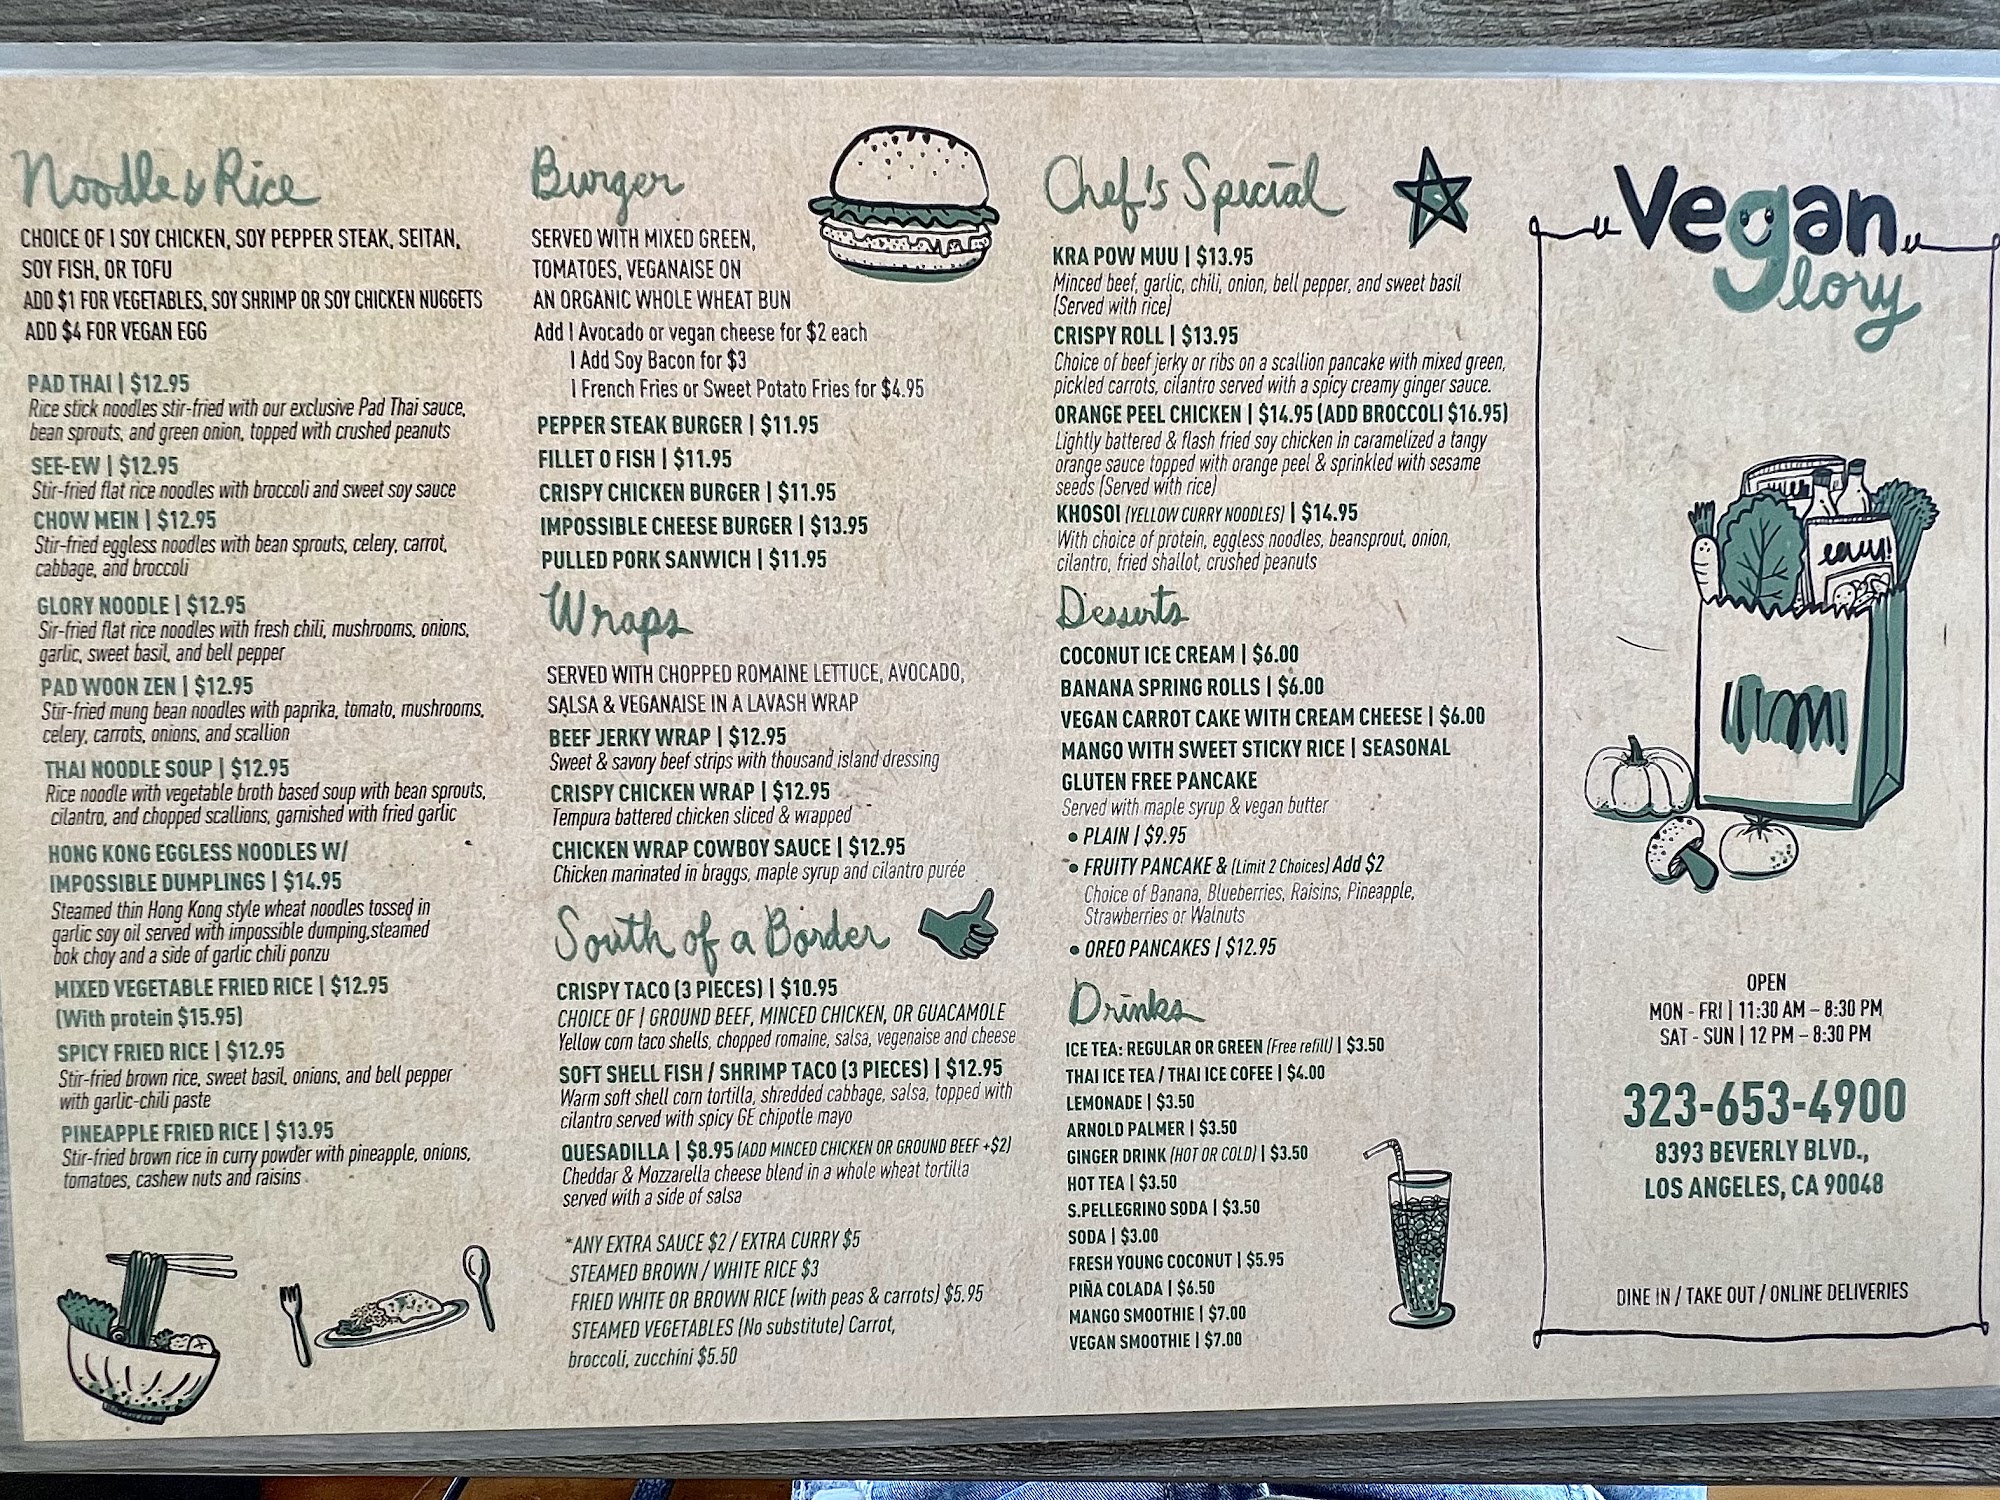 Noodle & Rice
CHOICE OF | SOY CHICKEN, SOY PEPPER STEAK, SEITAN,
SOY FISH, OR TOFU
ADD $1 FOR VEGETABLES, SOY SHRIMP OR SOY CHICKEN NUGGETS
ADD $4 FOR VEGAN EGG
PAD THAI | $12.95
Rice stick noodles stir-fried with our exclusive Pad Thai sauce,
bean sprouts, and green onion, topped with crushed peanuts
SEE-EW | $12.95
Stir-fried flat rice noodles with broccoli and sweet soy sauce
CHOW MEIN | $12.95
Stir-fried eggless noodles with bean sprouts, celery, carrot,
cabbage, and broccoli
GLORY NOODLE | $12.95
Sir-fried flat rice noodles with fresh chili, mushrooms, onions,
garlic, sweet basil, and bell pepper
PAD WOON ZEN | $12.95
Stir-fried mung bean noodles with paprika, tomato, mushrooms,
celery, carrots, onions, and scallion
THAI NOODLE SOUP | $12.95
Rice noodle with vegetable broth based soup with bean sprouts,
cilantro, and chopped scallions, garnished with fried garlic
HONG KONG EGGLESS NOODLES W/
IMPOSSIBLE DUMPLINGS | $14.95
Steamed thin Hong Kong style wheat noodles tossed in
garlic soy oil served with impossible dumping,steamed
bok choy and a side of garlic chili ponzu
MIXED VEGETABLE FRIED RICE | $12.95
(With protein $15.95)
SPICY FRIED RICE | $12.95
Stir-fried brown rice, sweet basil, onions, and bell pepper
with garlic-chili paste
PINEAPPLE FRIED RICE | $13.95
Stir-fried brown rice in curry powder with pineapple, onions,
tomatoes, cashew nuts and raisins
Burger
SERVED WITH MIXED GREEN,
TOMATOES, VEGANAISE ON
AN ORGANIC WHOLE WHEAT BUN
Add | Avocado or vegan cheese for $2 each
| Add Soy Bacon for $3
| French Fries or Sweet Potato Fries for $4.95
PEPPER STEAK BURGER | $11.95
FILLET O FISH | $11.95
CRISPY CHICKEN BURGER | $11.95
IMPOSSIBLE CHEESE BURGER | $13.95
PULLED PORK SANWICH | $11.95
Wraps
SERVED WITH CHOPPED ROMAINE LETTUCE, AVOCADO,
SALSA & VEGANAISE IN A LAVASH WRAP
BEEF JERKY WRAP | $12.95
Sweet & savory beef strips with thousand island dressing
CRISPY CHICKEN WRAP | $12.95
Tempura battered chicken sliced & wrapped
CHICKEN WRAP COWBOY SAUCE | $12.95
Chicken marinated in braggs, maple syrup and cilantro purée
South of a Border
CRISPY TACO (3 PIECES) | $10.95
CHOICE OF | GROUND BEEF, MINCED CHICKEN, OR GUACAMOLE
Yellow corn taco shells, chopped romaine, salsa, vegenaise and cheese
SOFT SHELL FISH / SHRIMP TACO (3 PIECES) | $12.95
Warm soft shell corn tortilla, shredded cabbage, salsa, topped with
cilantro served with spicy GE chipotle mayo
QUESADILLA | $8.95 (ADD MINCED CHICKEN OR GROUND BEEF +$2)
Cheddar & Mozzarella cheese blend in a whole wheat tortilla
served with a side of salsa
*ANY EXTRA SAUCE $2 / EXTRA CURRY $5
STEAMED BROWN / WHITE RICE $3
FRIED WHITE OR BROWN RICE (with peas & carrots) $5.95
STEAMED VEGETABLES (No substitute) Carrot,
broccoli, zucchini $5.50
Chef's Special
KRA POW MUU | $13.95
Minced beef, garlic, chili, onion, bell pepper, and sweet basil
(Served with rice)
CRISPY ROLL | $13.95
Choice of beef jerky or ribs on a scallion pancake with mixed green,
pickled carrots, cilantro served with a spicy creamy ginger sauce.
ORANGE PEEL CHICKEN | $14.95 (ADD BROCCOLI $16.95)
Lightly battered & flash fried soy chicken in caramelized a tangy
orange sauce topped with orange peel & sprinkled with sesame
seeds (Served with rice)
KHOSOI (YELLOW CURRY NOODLES) | $14.95
With choice of protein, eggless noodles, beansprout, onion,
cilantro, fried shallot, crushed peanuts
Desserts
COCONUT ICE CREAM | $6.00
BANANA SPRING ROLLS | $6.00
VEGAN CARROT CAKE WITH CREAM CHEESE | $6.00
MANGO WITH SWEET STICKY RICE | SEASONAL
GLUTEN FREE PANCAKE
Served with maple syrup & vegan butter
• PLAIN | $9.95
• FRUITY PANCAKE & (Limit 2 Choices) Add $2
Choice of Banana, Blueberries, Raisins, Pineapple,
Strawberries or Walnuts
• OREO PANCAKES | $12.95
Drinks
ICE TEA: REGULAR OR GREEN (Free refill) | $3.50
THAI ICE TEA / THAI ICE COFEE | $4.00
LEMONADE | $3.50
ARNOLD PALMER | $3.50
GINGER DRINK (HOT OR COLD) | $3.50
HOT TEA | $3.50
S.PELLEGRINO SODA | $3.50
SODA | $3.00
FRESH YOUNG COCONUT | $5.95
PIÑA COLADA | $6.50
MANGO SMOOTHIE | $7.00
VEGAN SMOOTHIE | $7.00
Vegan
Glory
OPEN
MON - FRI | 11:30 AM – 8:30 PM
SAT - SUN | 12 PM – 8:30 PM
323-653-4900
8393 BEVERLY BLVD.,
LOS ANGELES, CA 90048
DINE IN / TAKE OUT / ONLINE DELIVERIES